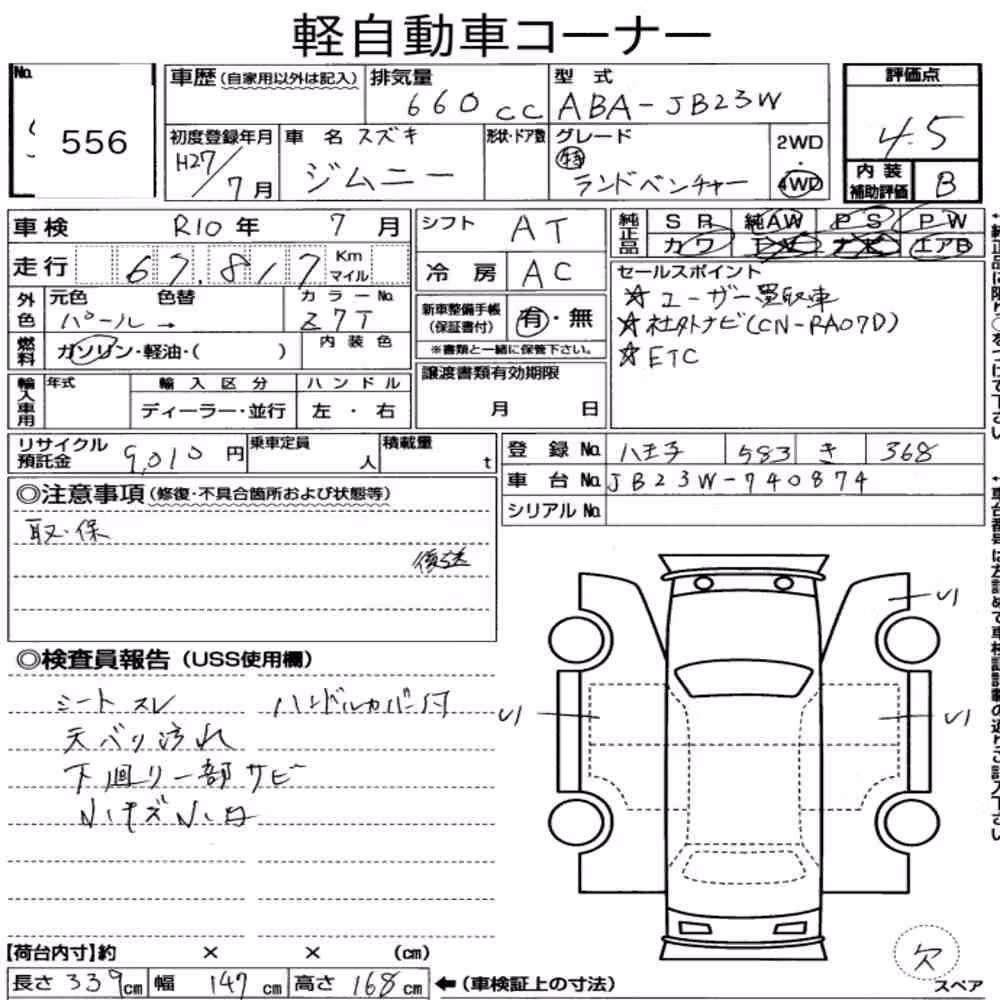 軽自動車コーナー
No. 556
車歴 (自家用以外は記入)
排気量 660 cc
型式 ABA-JB23W
評価点 4.5
初度登録年月 H27/7月
車名 スズキ ジムニー
形状・ドア数
グレード 特 ランドベンチャー
2WD・4WD
内装補助評価 B
車検 R10年 7月
シフト AT
純正品 SR 純AW PS PW
カワ エアB
走行 67,817 Km マイル
冷房 AC
セールスポイント
☆ユーザー買取車
☆社外ナビ(CN-RA07D)
☆ETC
外色 元色 パール→ 色替
カラーNo. Z7T
新車整備手帳(保証書付) 有・無
※書類と一緒に保管下さい。
燃料 ガソリン・軽油・( )
内装色
譲渡書類有効期限
月 日
輸入車用 年式
輸入区分 ディーラー・並行
ハンドル 左・右
リサイクル預託金 9,010円
乗車定員 人
積載量 t
登録No. 八王子 583 き 368
車台No. JB23W-740874
シリアルNo.
◎注意事項(修復・不具合箇所および状態等)
取・保
後送
◎検査員報告(USS使用欄)
シートスレ ハンドルカバー付
天バリ汚れ
下廻り一部サビ
小キズ小凹
U1
U1
U1
欠
スペア
【荷台内寸】約 × × (cm)
長さ 339cm 幅 147cm 高さ 168cm ←(車検証上の寸法)